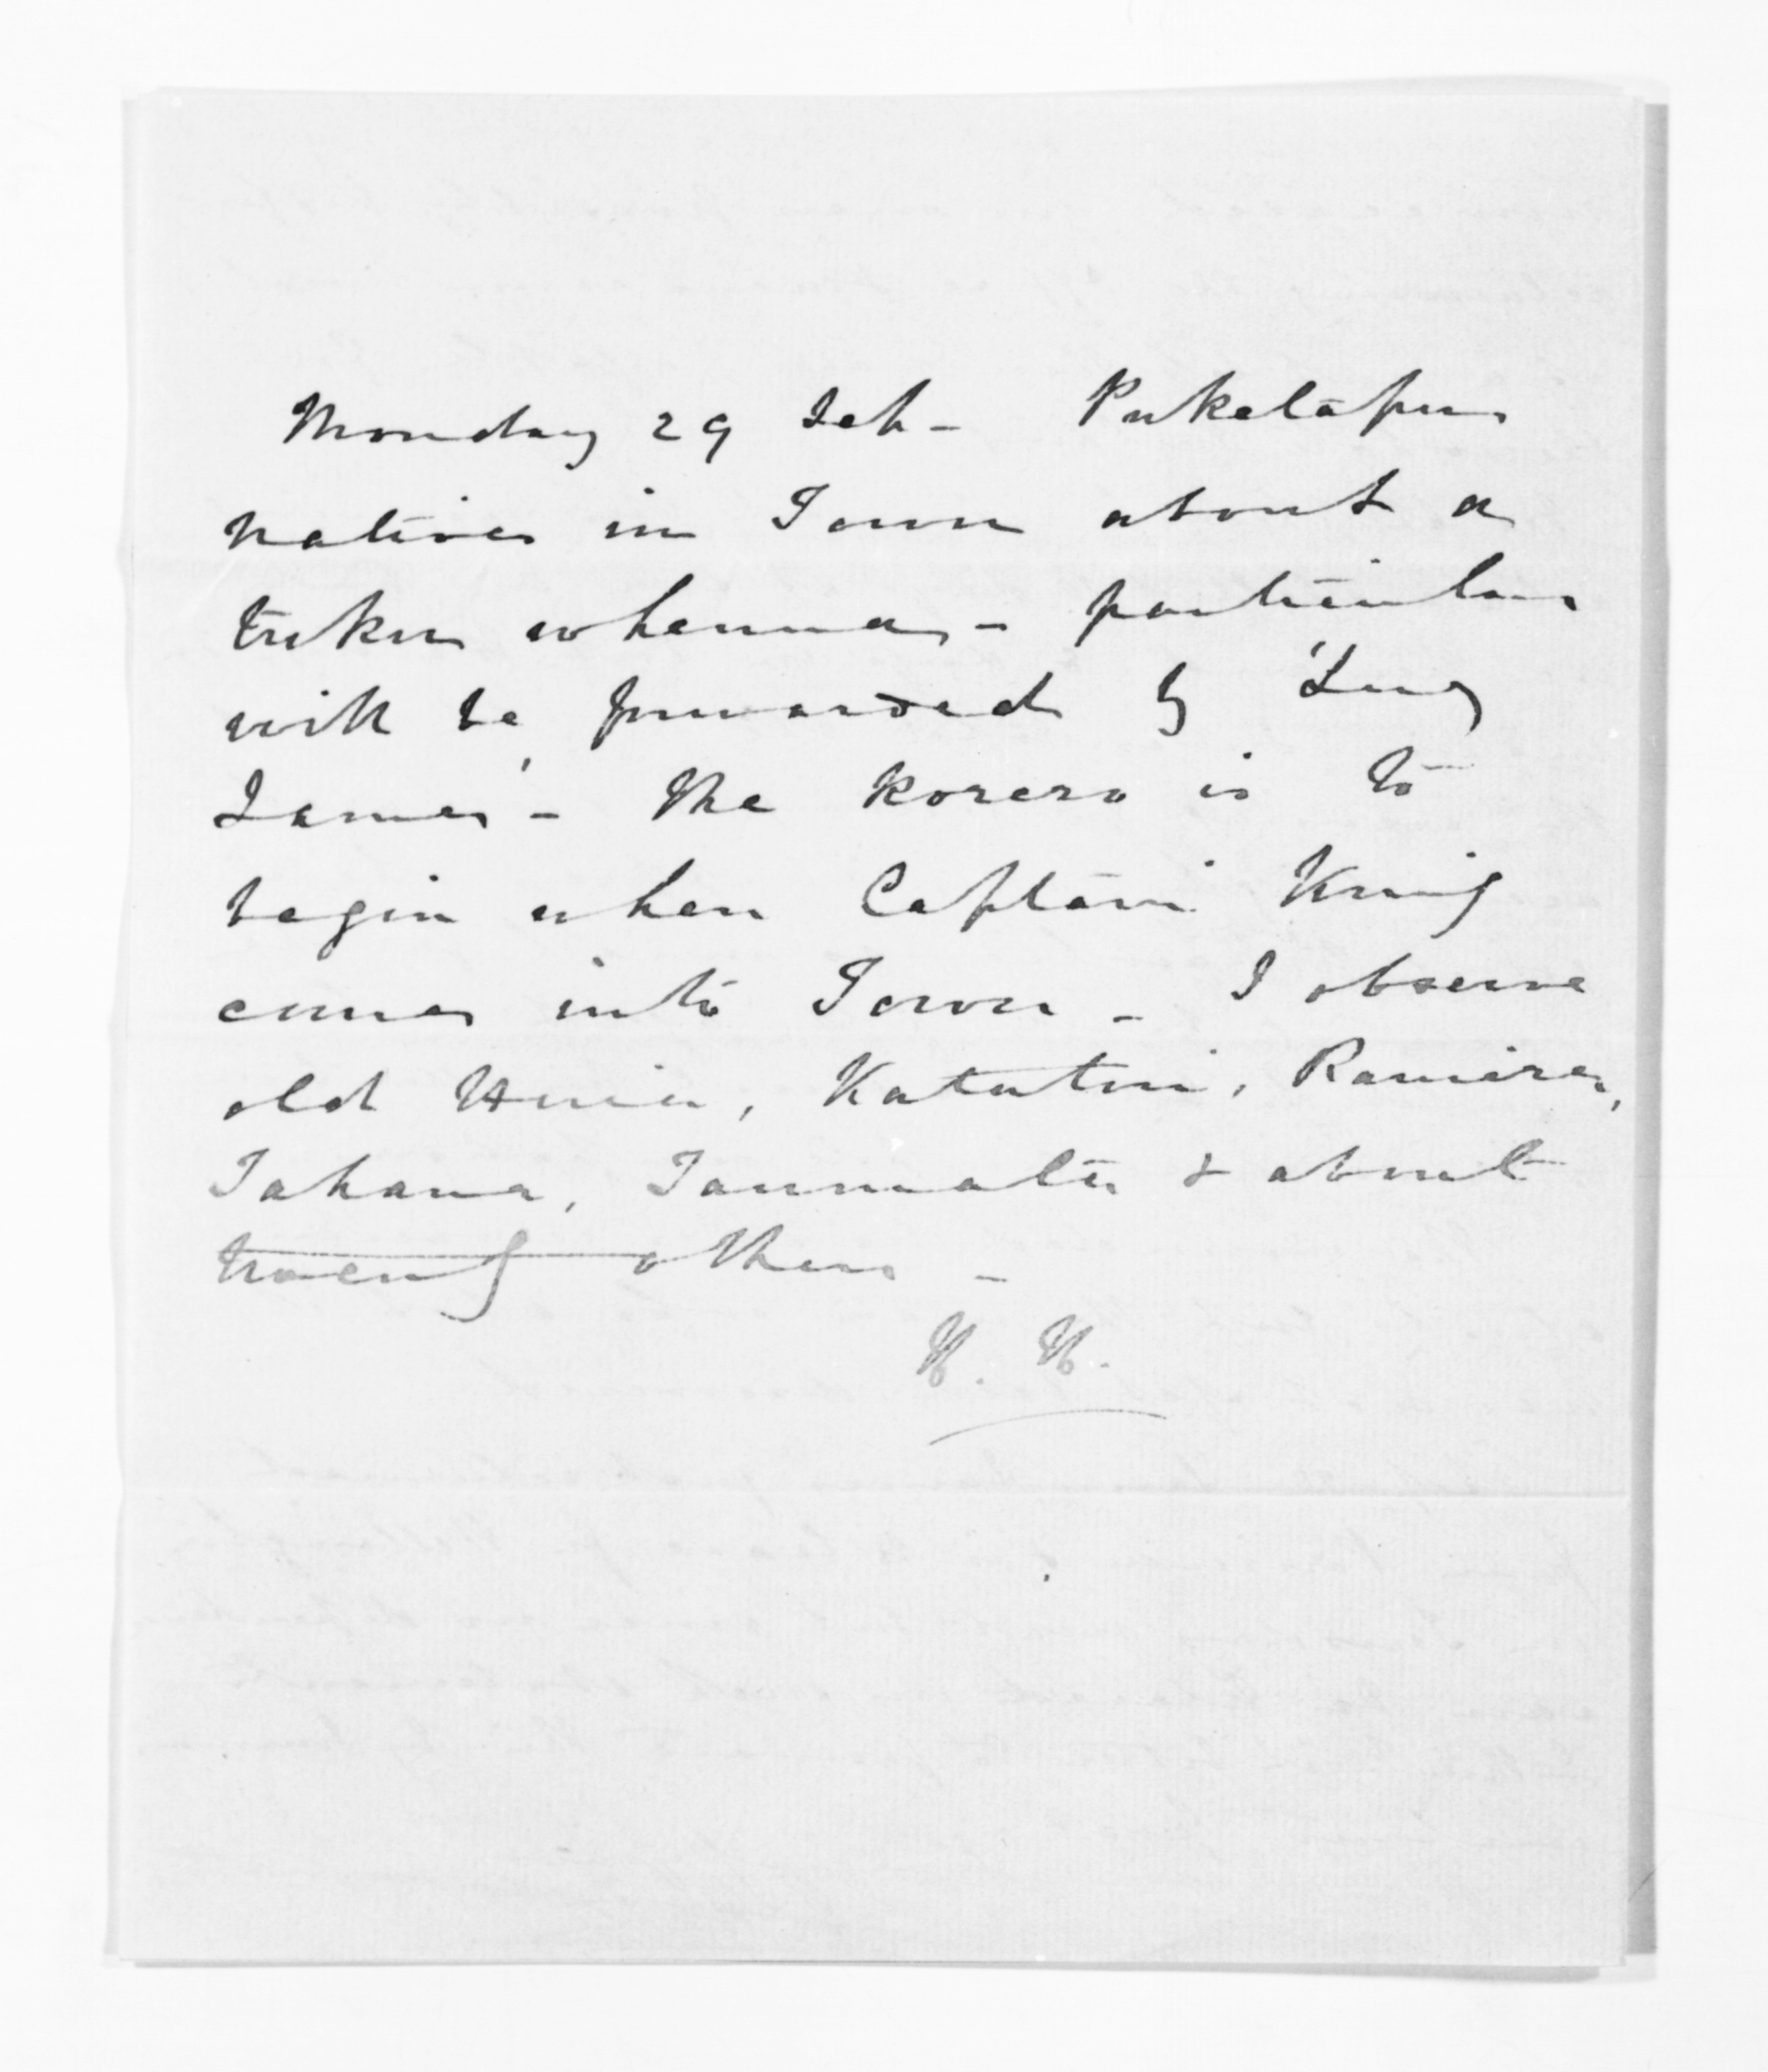 Monday 29 Feb - Puketapu
natives in Town about a
tuku whenua - particulars
will be forwarded by "Lucy
James" - The korero is to
begin when Captain King
comes into Town - I observe
old Huia, Katatori, Ramiera,
Tahana, Taumata & about
twenty others -
H. H.